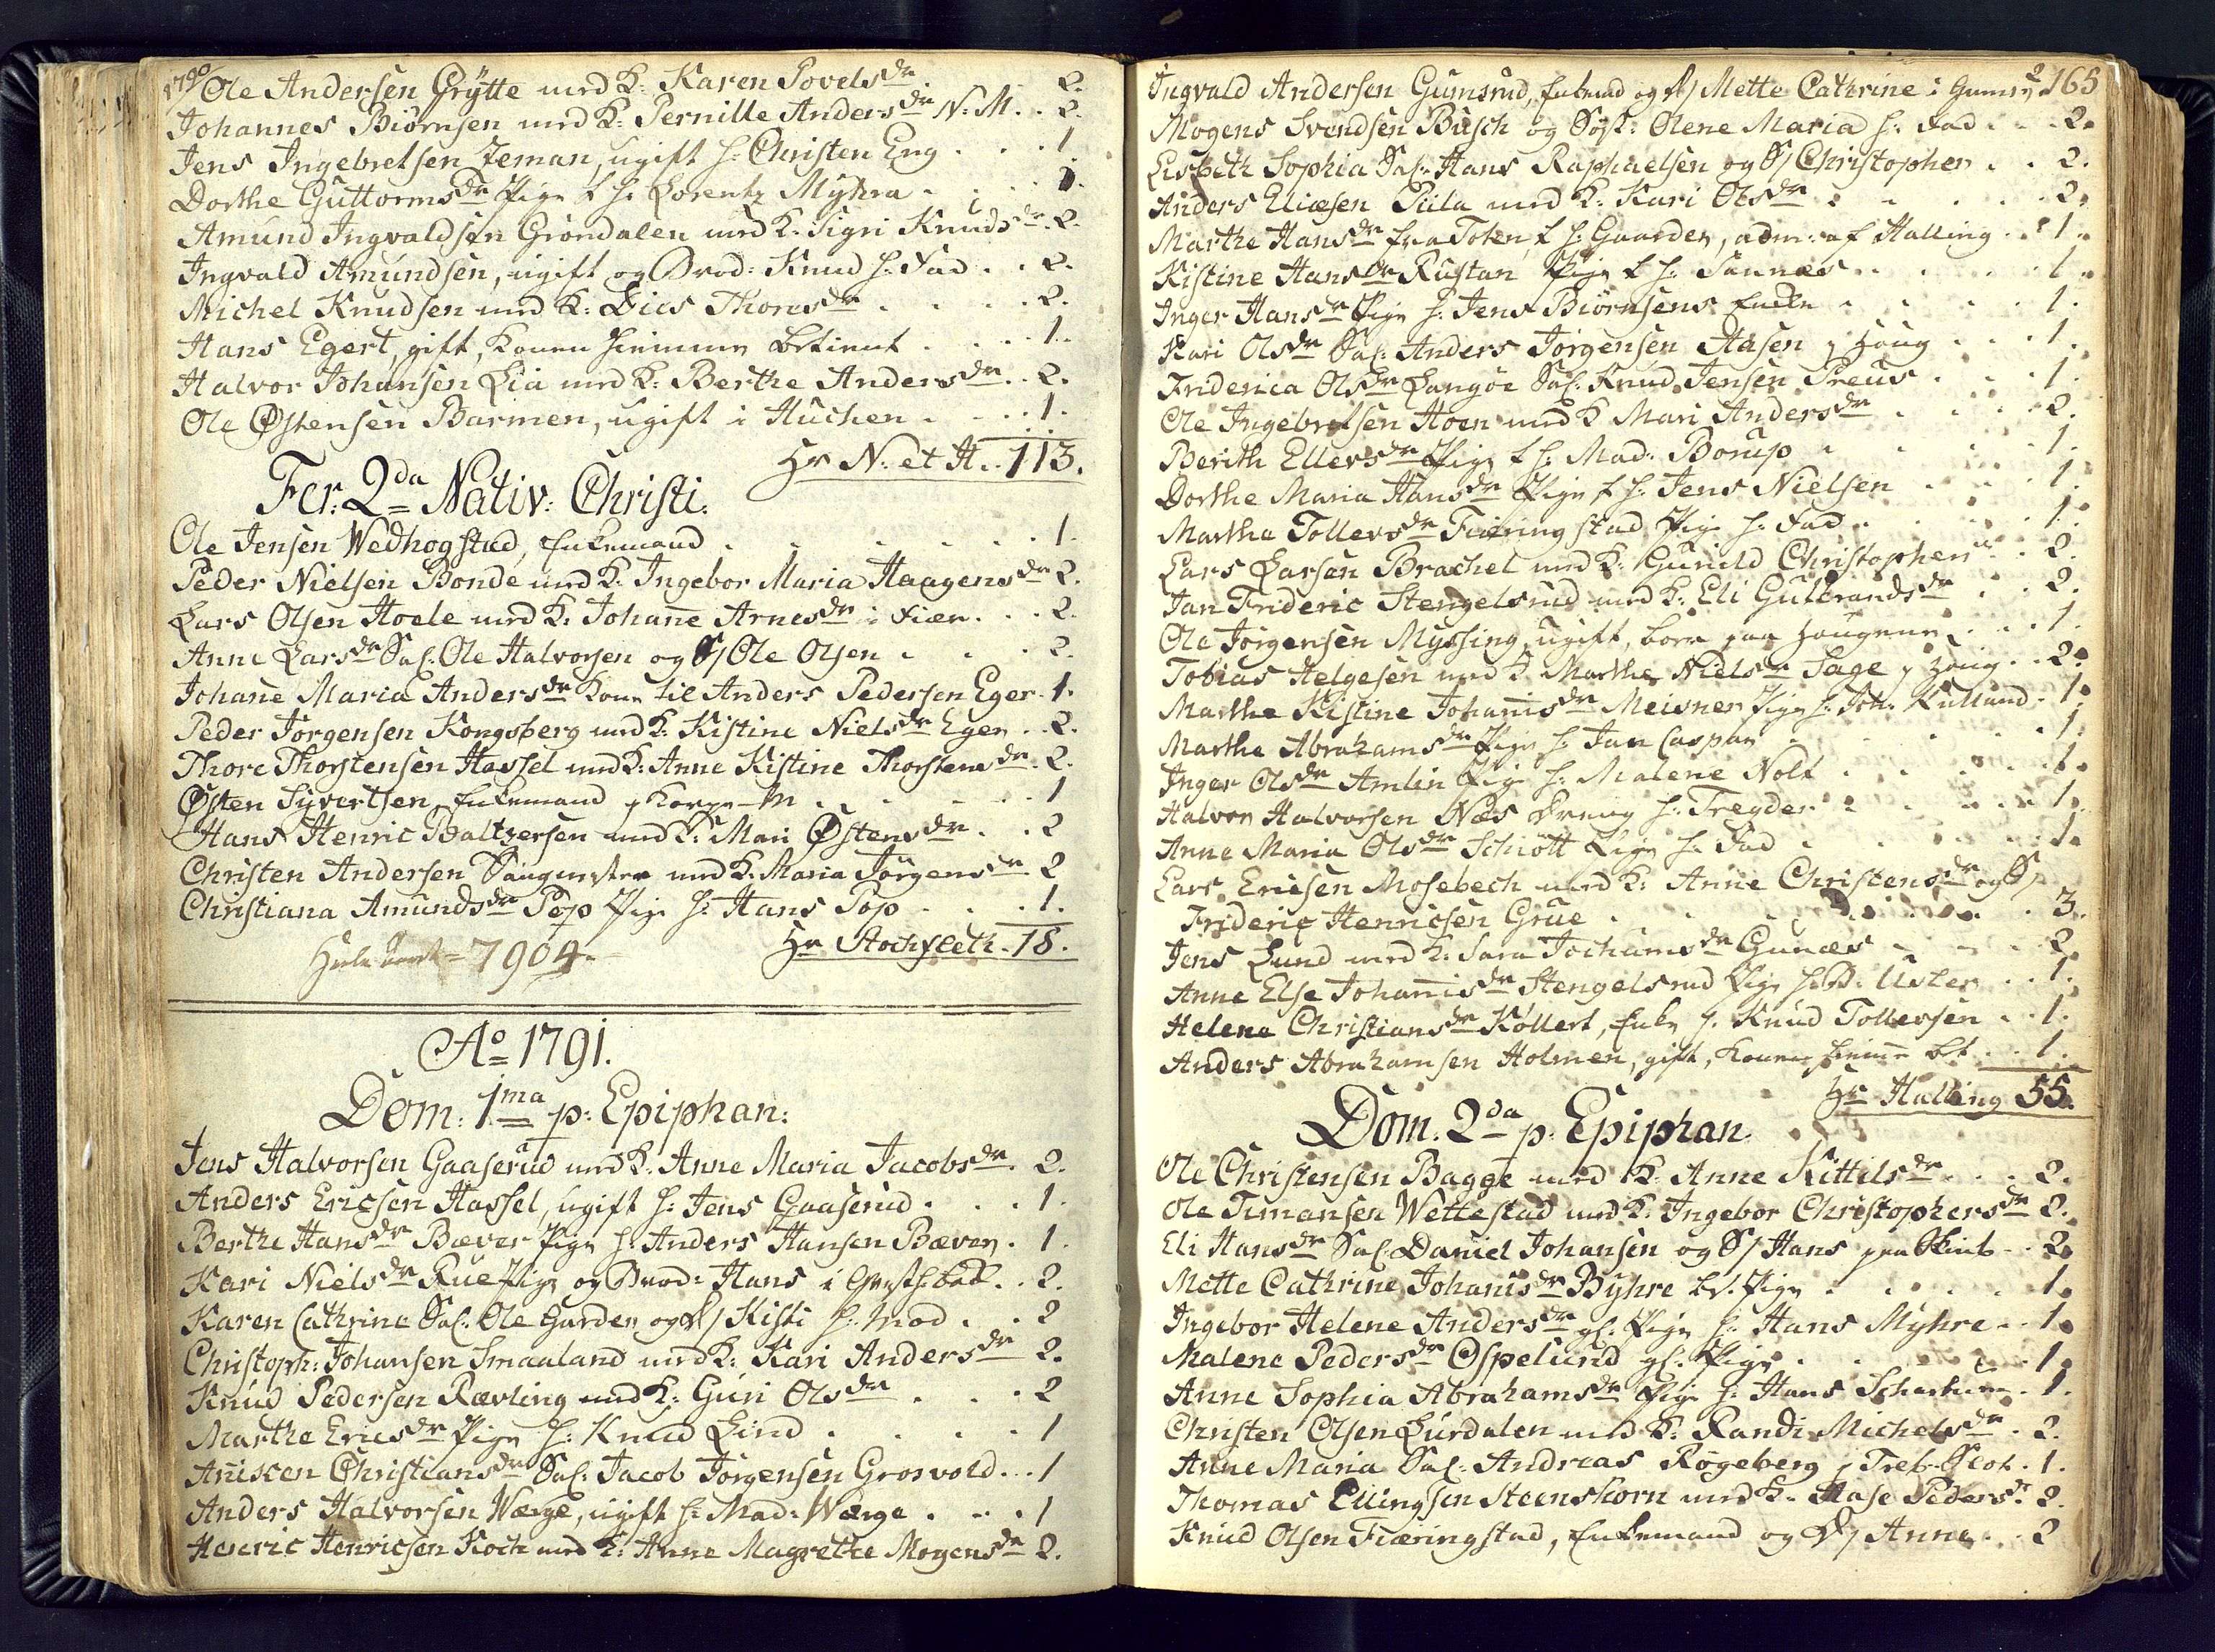 1790
Ole Andersen Grÿtte med K: Karen Povelsdr 2.
Johannes Biørnsen med K: Pernille Andersdr N: M. . 2.
Jens Ingebretsen Zeman, ugift h: Christen Eng . . . 1
Dorthe Guttormsdr Pige t h: Lorentz Myhra . . . . 1.
Amund Ingvaldsen Grøndalen med K: Sigri Knudsdr . 2.
Ingvald Amundsen, ugift og Brod: Knud h: Fad . . 2.
Michel Knudsen med K: Lies Thorsdr . . . . . 2.
Hans Egert, gift, Konen hiemme betient . . . . 1.
Halvor Johansen Lia med K: Berthe Andersdr . . 2.
Ole Østensen Barmen, ugift i Huchen . . . . 1.
Hr N: et H. . 113.
Fer: 2da Nativ: Christi.
Ole Jensen Wedhogstad, Enkemand . . . . . . 1.
Peder Nielsen Bonde med K: Ingebor Maria Haagensdr 2.
Lars Olsen Hoele med K: Johane Arnesdr i Fier . . . 2.
Anne Larsdr Sal: Ole Halvorsen og S/ Ole Olsen . . . 2.
Johane Maria Andersdr Kone til Anders Pedersen Eger . 1.
Peder Jørgensen Kongsberg med K: Kistine Nielsdr Eger . . 2.
Thore Thorstensen Hassel med K: Anne Kistine Thorstensdr . 2.
Østen Syvertsen, Enkemand p M . . . . . 1
Hans Henric Baltzersen med K: Mari Østensdr . . 2
Christen Andersen Saugmester med K: Maria Jørgensdr 2
Christiana Amundsdr Pop Pige h: Hans Pop . . . . 1.
Hr Stochfleth . 18.
7904.
Ao 1791.
Dom: 1ma p: Epiphan:
Jens Halvorsen Gaaserud med K: Anne Maria Jacobsdr . 2.
Anders Ericsen Hassel, ugift h: Jens Gaaserud . . . 1.
Berthe Hansdr Bæver Pige h: Anders Hansen Bæver . 1.
Kari Nielsdr Rue Pige og Brod: Hans i . . 2.
Karen Cathrine Sal: Ole Garder og D/ Kisti h: Mod . . 2
Christoph: Johansen Smaaland med K: Kari Andersdr 2.
Knud Pedersen Rævling med K: Guri Olsdr . . . 2
Marthe Ericsdr Pige h: Knud Lind . . . . . 1
Anisken Christiansdr Sal: Jacob Jørgensen Grosvold . . . 1
Anders Halvorsen Wærge, ugift h: Mad: Wærge . . . . 1
Henric Henricsen Koch med K: Anne Magrethe Mogensdr 2.
165
Ingvald Andersen Gumsrud, Enkemd og D/ Mette Cathrine i 2
Mogens Svendsen Busch og Søst: Olene Maria h: Fad . . . 2.
Lisbeth Sophia Sal: Hans Raphaelsen og S/ Christopher . . 2.
Anders Eliæsen Piila med K: Kari Olsdr . . . . . 2.
Marthe Hansdr fra Toten t h: Gaarder, adm: af Halling . . 1.
Kistine Hansdr Rustan Pige t h: Sannæs . . . . . 1.
Inger Hansdr Pige h: Jens Biørnsens Enke . . . . 1.
Kari Olsdr Sal: Anders Jørgensen Aasen p Houg . . . 1.
Friderica Olsdr Langøe Sal: Knud Jensen Preus . . . 1.
Ole Ingebretsen Hoen med K Mari Andersdr . . . . 2.
Berith Ellevsdr Pige t h: Mad: Borup . . . . 1.
Dorthe Maria Hansdr Pige t h: Jens Nielsen . . . 1.
Marthe Tollevsdr Fiæringstad Pige h: Fad . . . . 1.
Lars Larsen Brachel med K: Gunild Christophersdr . . 2.
Jan Frideric Stengelsrud med K: Eli Gulbrandsdr . . . 2.
Ole Jørgensen Myssing, ugift, boer paa Hougene . . . 1.
Tobias Helgesen med K Marthe Nielsdr Sage p Houg . . 2.
Marthe Kistine Johanisdr Meisner Pige h: Joh: Kulland . 1.
Marthe Abrahamsdr Pige h: Jan Caspar . . . . . 1.
Inger Olsdr Amlin Pige h: Malene Nolt . . . . . 1.
Halvor Halvorsen Næs Dreng h: Tregder . . . . 1.
Anne Maria Olsdr Schiøtt Pige h: Fad . . . . . 1.
Lars Ericsen Mosebech med K: Anne Christensdr og S/
Frideric Henricsen Grue . . . . . . . 3.
Jens Lund med K: Sara Jochumsdr Gunæs . . . 2.
Anne Else Johanisdr Stengelsrud Pige h: P: Usler . . 1.
Helene Christiansdr Køllert, Enke h: Knud Tollevsen . . 1.
Anders Abrahamsen Holmen, gift, Konen hiemme bet . . 1.
Hr Halling 55.
Dom: 2da p: Epiphan:
Ole Christensen Bagge med K: Anne Kittilsdr . . . 2.
Ole Timansen Wettestad med K: Ingebor Christophersdr 2.
Eli Hansdr Sal: Daniel Johansen og S/ Hans paa . . 2.
Mette Cathrine Johanisdr Byhre Pige . . . . . 1.
Ingebor Helene Andersdr gl: Pige h: Hans Myhre . . 1.
Malene Pedersdr Ospelund gl: Pige . . . . . 1.
Anne Sophia Abrahamsdr Pige h: Hans . 1.
Christen Olsen Lurdalen med K: Randi Michelsdr . 2.
Anne Maria Sal: Andreas Røgeberg p . 1.
Thomas Ellingsen Steenshorn med K: Aase Pedersdr 2.
Knud Olsen Fiæringstad, Enkemand og D/ Anne . . 2